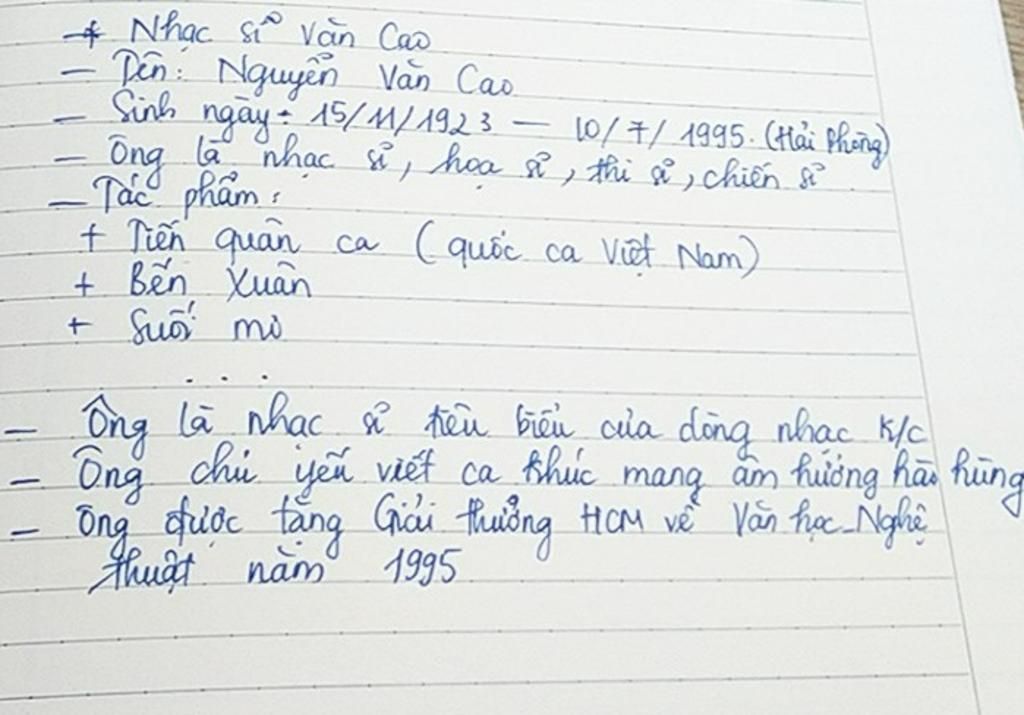 * Nhạc sĩ Văn Cao
- Tên: Nguyễn Văn Cao
- Sinh ngày: 15/11/1923 - 10/7/1995. (Hải Phòng)
- Ông là nhạc sĩ, hoạ sĩ, thi sĩ, chiến sĩ
- Tác phẩm:
+ Tiến quân ca (quốc ca Việt Nam)
+ Bến Xuân
+ Suối mơ
. . .
- Ông là nhạc sĩ tiêu biểu của dòng nhạc k/c
- Ông chủ yếu viết ca khúc mang âm hưởng hào hùng
- Ông được tặng Giải thưởng HCM về Văn học-Nghệ
thuật năm 1995